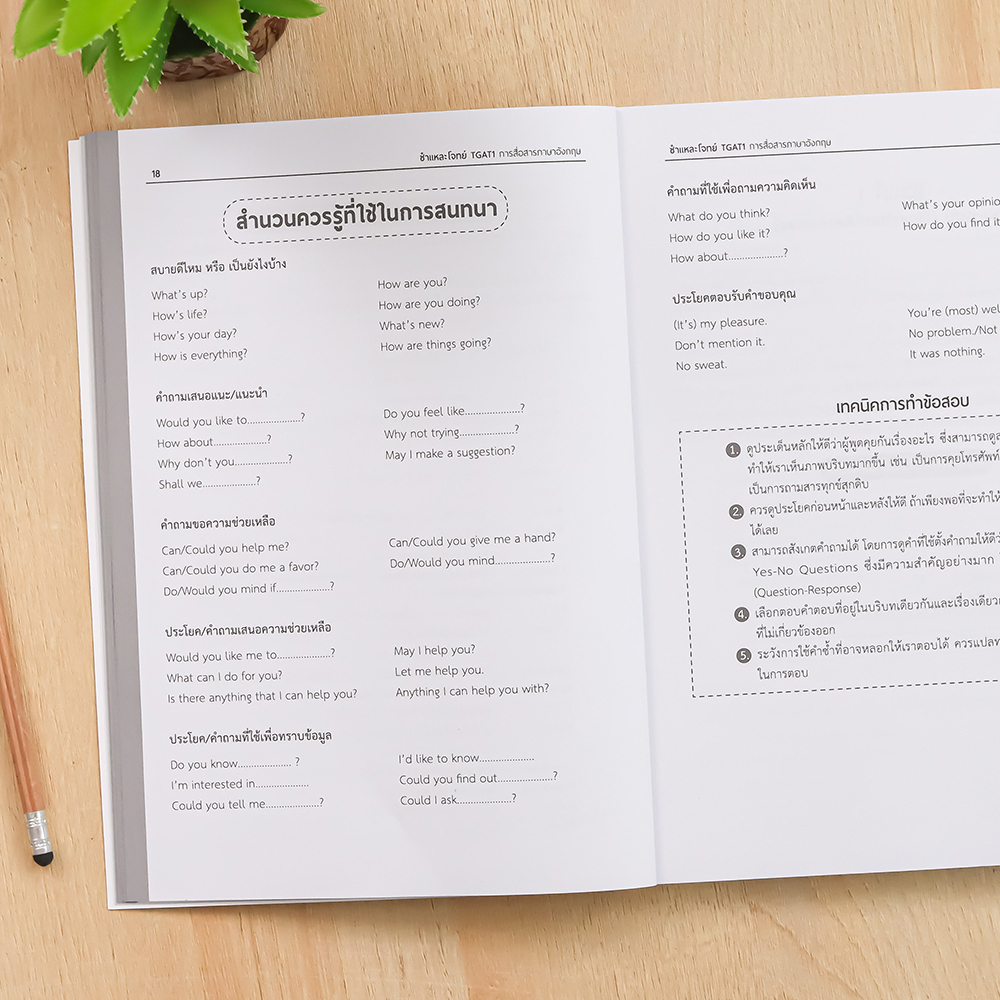 18
ชำแหละโจทย์ TGAT1 การสื่อสารภาษาอังกฤษ
สำนวนควรรู้ที่ใช้ในการสนทนา
สบายดีไหม หรือ เป็นยังไงบ้าง
What's up?
How's life?
How's your day?
How is everything?
How are you?
How are you doing?
What's new?
How are things going?
คำถามเสนอแนะ/แนะนำ
Would you like to....................?
How about....................?
Why don't you....................?
Shall we....................?
Do you feel like....................?
Why not trying....................?
May I make a suggestion?
คำถามขอความช่วยเหลือ
Can/Could you help me?
Can/Could you do me a favor?
Do/Would you mind if....................?
Can/Could you give me a hand?
Do/Would you mind....................?
ประโยค/คำถามเสนอความช่วยเหลือ
Would you like me to....................?
What can I do for you?
Is there anything that I can help you?
May I help you?
Let me help you.
Anything I can help you with?
ประโยค/คำถามที่ใช้เพื่อทราบข้อมูล
Do you know.................... ?
I'm interested in....................
Could you tell me....................?
I'd like to know....................
Could you find out....................?
Could I ask....................?
ชำแหละโจทย์ TGAT1 การสื่อสารภาษาอังกฤษ
คำถามที่ใช้เพื่อถามความคิดเห็น
What do you think?
How do you like it?
How about....................?
What's your opinio
How do you find it
ประโยคตอบรับคำขอบคุณ
(It's) my pleasure.
Don't mention it.
No sweat.
You're (most) wel
No problem./Not
It was nothing.
เทคนิคการทำข้อสอบ
1. ดูประเด็นหลักให้ดีว่าผู้พูดคุยกันเรื่องอะไร ซึ่งสามารถดู
ทำให้เราเห็นภาพบริบทมากขึ้น เช่น เป็นการคุยโทรศัพท์
เป็นการถามสารทุกข์สุกดิบ
2. ควรดูประโยคก่อนหน้าและหลังให้ดี ถ้าเพียงพอที่จะทำให้
ได้เลย
3. สามารถสังเกตคำถามได้ โดยการดูคำที่ใช้ตั้งคำถามให้ดี
Yes-No Questions ซึ่งมีความสำคัญอย่างมาก
(Question-Response)
4. เลือกตอบคำตอบที่อยู่ในบริบทเดียวกันและเรื่องเดียว
ที่ไม่เกี่ยวข้องออก
5. ระวังการใช้คำซ้ำที่อาจหลอกให้เราตอบได้ ควรแปล
ในการตอบ